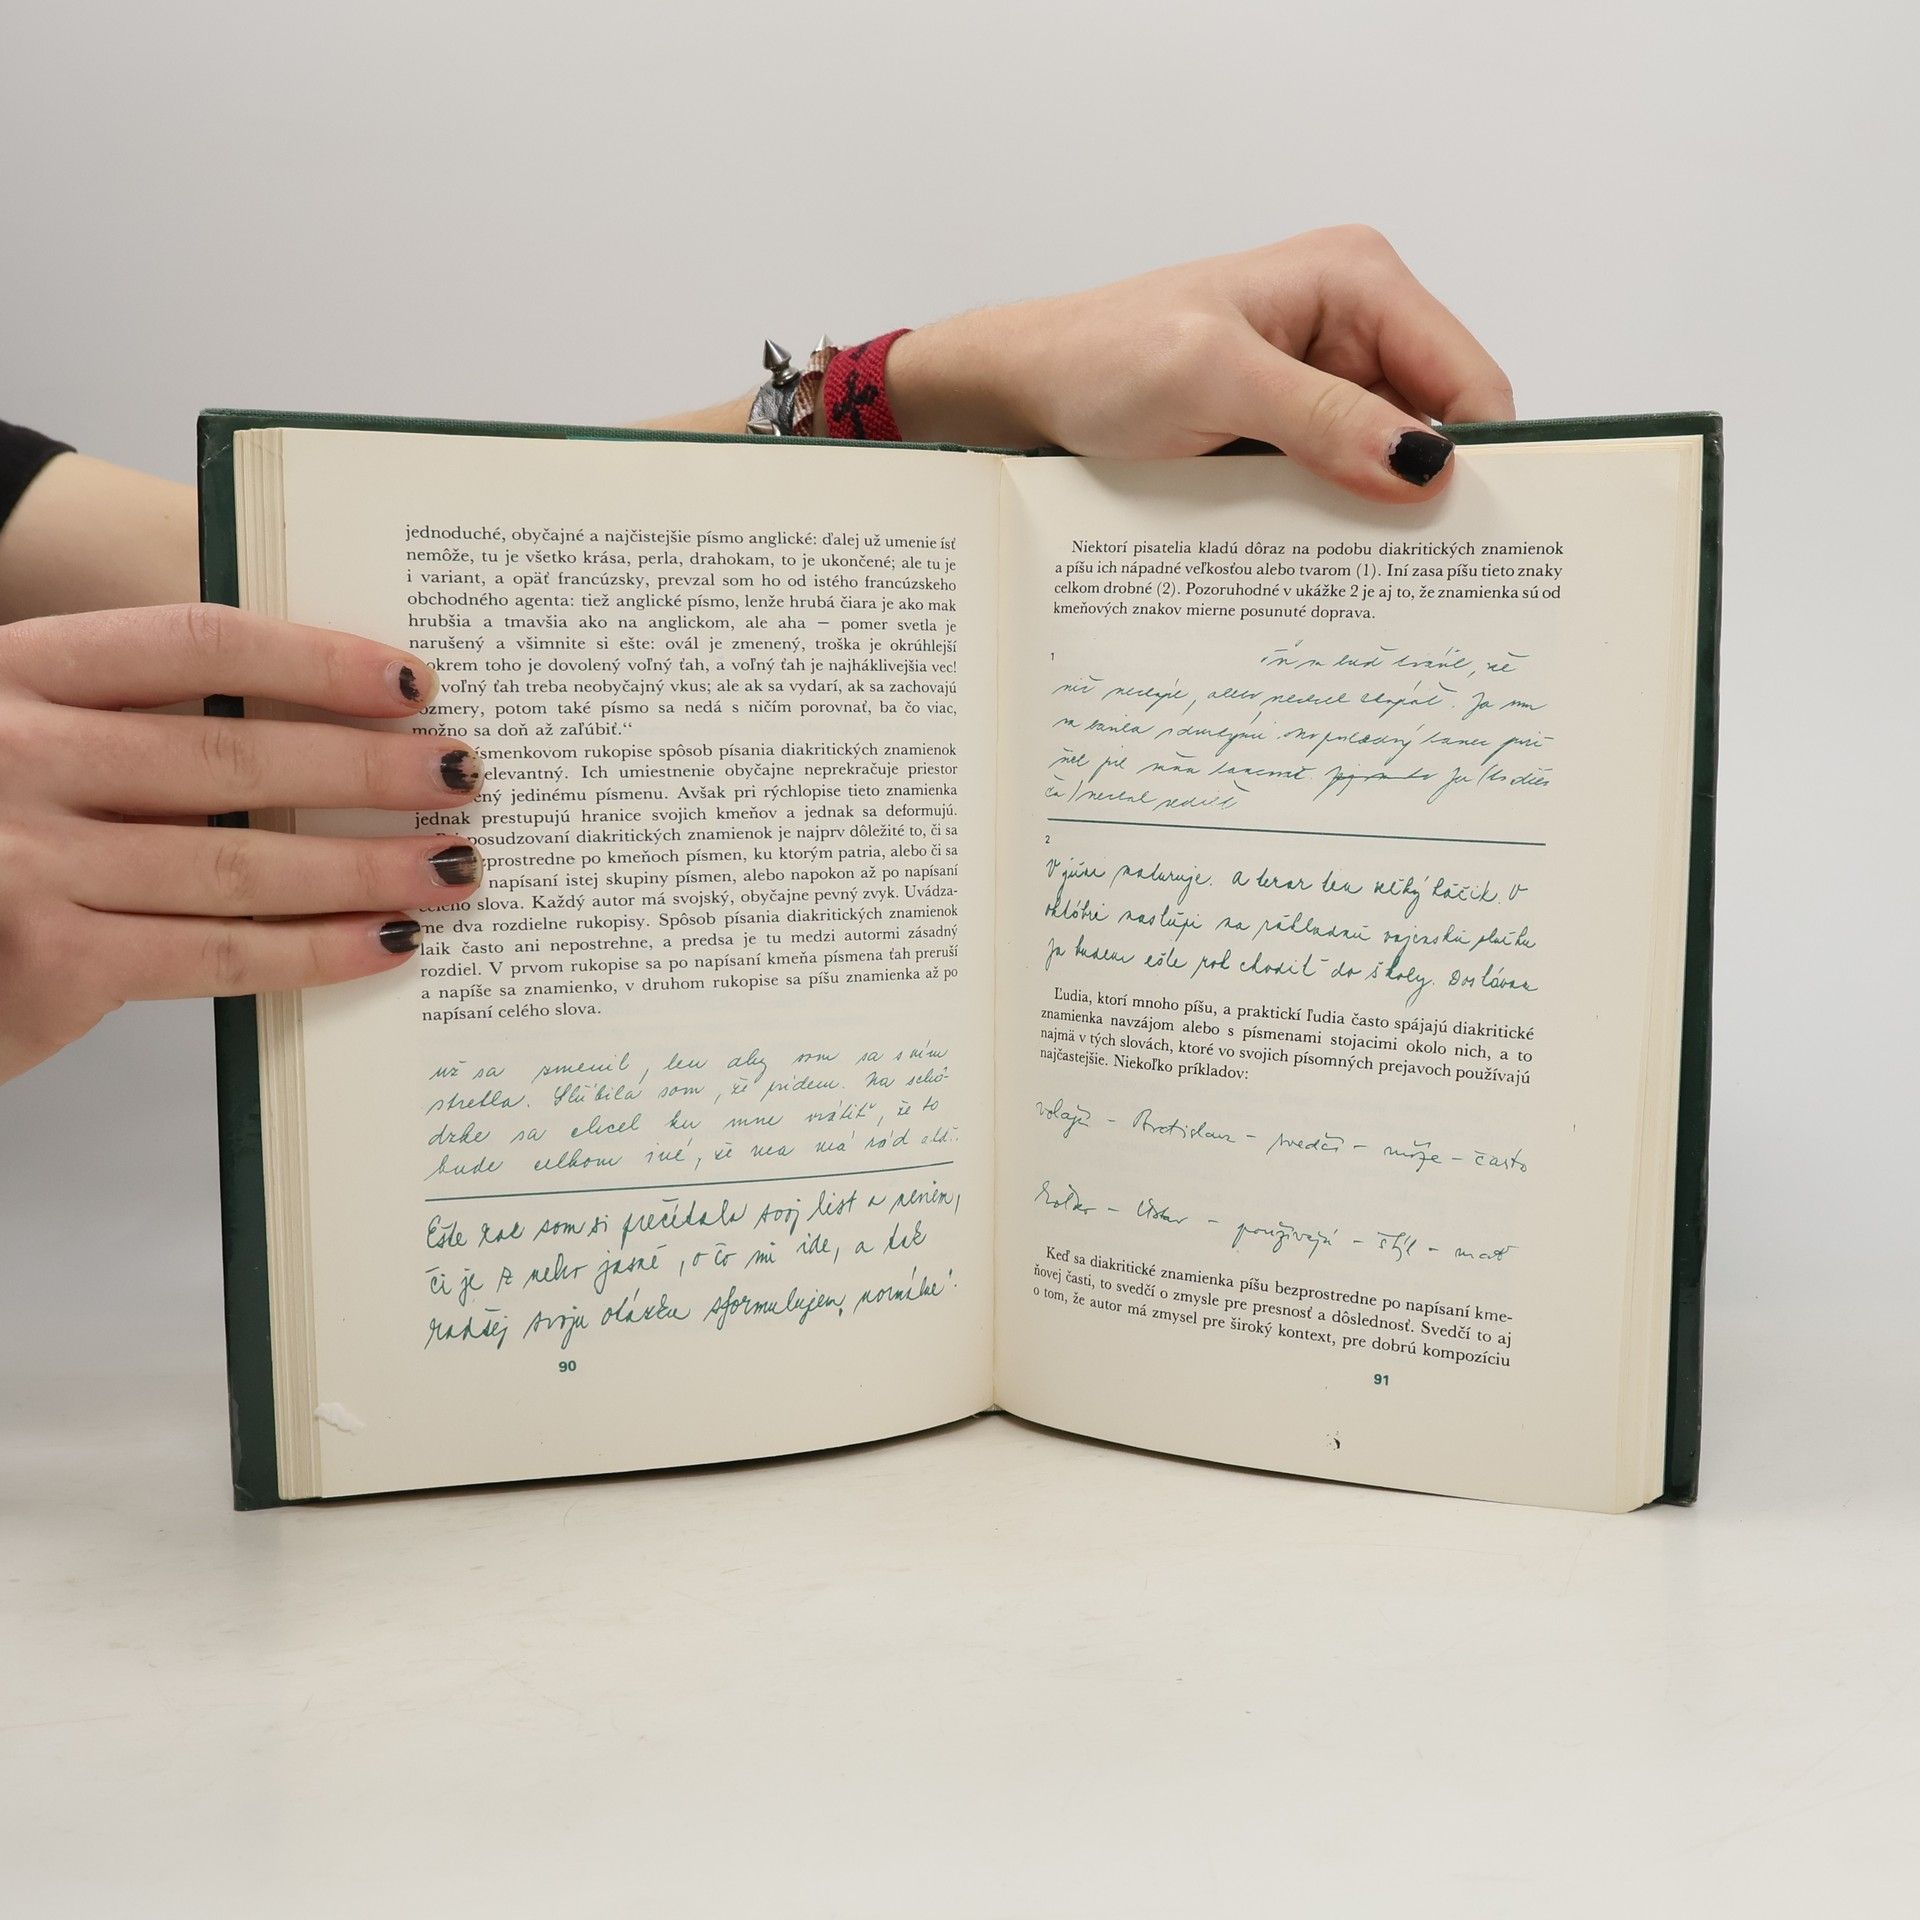 jednoduché, obyčajné a najčistejšie písmo anglické: ďalej už umenie ísť
nemôže, tu je všetko krása, perla, drahokam, to je ukončené; ale tu je
i variant, a opäť francúzsky, prevzal som ho od istého francúzskeho
obchodného agenta: tiež anglické písmo, lenže hrubá čiara je ako mak
hrubšia a tmavšia ako na anglickom, ale aha — pomer svetla je
narušený a všimnite si ešte: ovál je zmenený, troška je okrúhlejší
okrem toho je dovolený voľný ťah, a voľný ťah je najháklivejšia vec!
voľný ťah treba neobyčajný vkus; ale ak sa vydarí, ak sa zachovajú
ozmery, potom také písmo sa nedá s ničím porovnať, ba čo viac,
možno sa doň až zaľúbiť.“
ísmenkovom rukopise spôsob písania diakritických znamienok
elevantný. Ich umiestnenie obyčajne neprekračuje priestor
ený jedinému písmenu. Avšak pri rýchlopise tieto znamienka
jednak prestupujú hranice svojich kmeňov a jednak sa deformujú.
posudzovaní diakritických znamienok je najprv dôležité to, či sa
zprostredne po kmeňoch písmen, ku ktorým patria, alebo či sa
napísaní istej skupiny písmen, alebo napokon až po napísaní
slova. Každý autor má svojský, obyčajne pevný zvyk. Uvádza-
me dva rozdielne rukopisy. Spôsob písania diakritických znamienok
laik často ani nepostrehne, a predsa je tu medzi autormi zásadný
rozdiel. V prvom rukopise sa po napísaní kmeňa písmena ťah preruší
a napíše sa znamienko, v druhom rukopise sa píšu znamienka až po
napísaní celého slova.
už sa zmenil, len aby som sa s ním
stretla. Sľúbila som, že prídem. Na schô-
dzke sa chcel ku mne vrátiť, že to
bude celkom iné, že ma má rád atď.
Ešte raz som si prečítala svoj list a neviem,
či je z neho jasné, o čo mi ide, a tak
radšej svoju otázku sformulujem normálne.
90
Niektorí pisatelia kladú dôraz na podobu diakritických znamienok
a píšu ich nápadné veľkosťou alebo tvarom (1). Iní zasa píšu tieto znaky
celkom drobné (2). Pozoruhodné v ukážke 2 je aj to, že znamienka sú od
kmeňových znakov mierne posunuté doprava.
1
2
V júni maturuje. A teraz ten veľký háčik. V
októbri nastúpi na základnú vojenskú službu
Ja budem ešte rok chodiť do školy. Dostávam
Ľudia, ktorí mnoho píšu, a praktickí ľudia často spájajú diakritické
znamienka navzájom alebo s písmenami stojacimi okolo nich, a to
najmä v tých slovách, ktoré vo svojich písomných prejavoch používajú
najčastejšie. Niekoľko príkladov:
volajú – Bratislava – svedčí – môže – často
– Ústav – používajú – štýl – mať
Keď sa diakritické znamienka píšu bezprostredne po napísaní kme-
ňovej časti, to svedčí o zmysle pre presnosť a dôslednosť. Svedčí to aj
o tom, že autor má zmysel pre široký kontext, pre dobrú kompozíciu
91